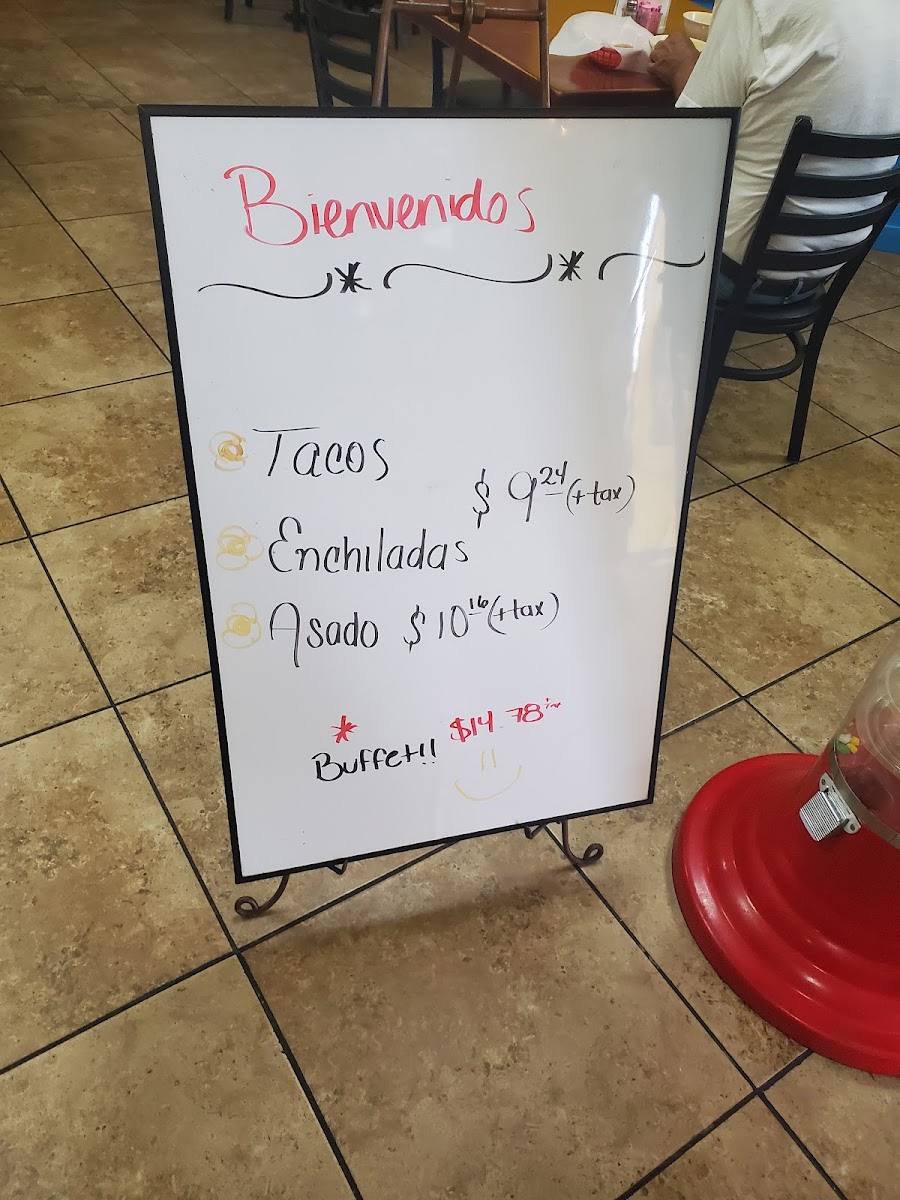 Bienvenidos
Tacos
$9.24 (+tax)
Enchiladas
Asado $10.16 (+tax)
* Buffet!! $14.78